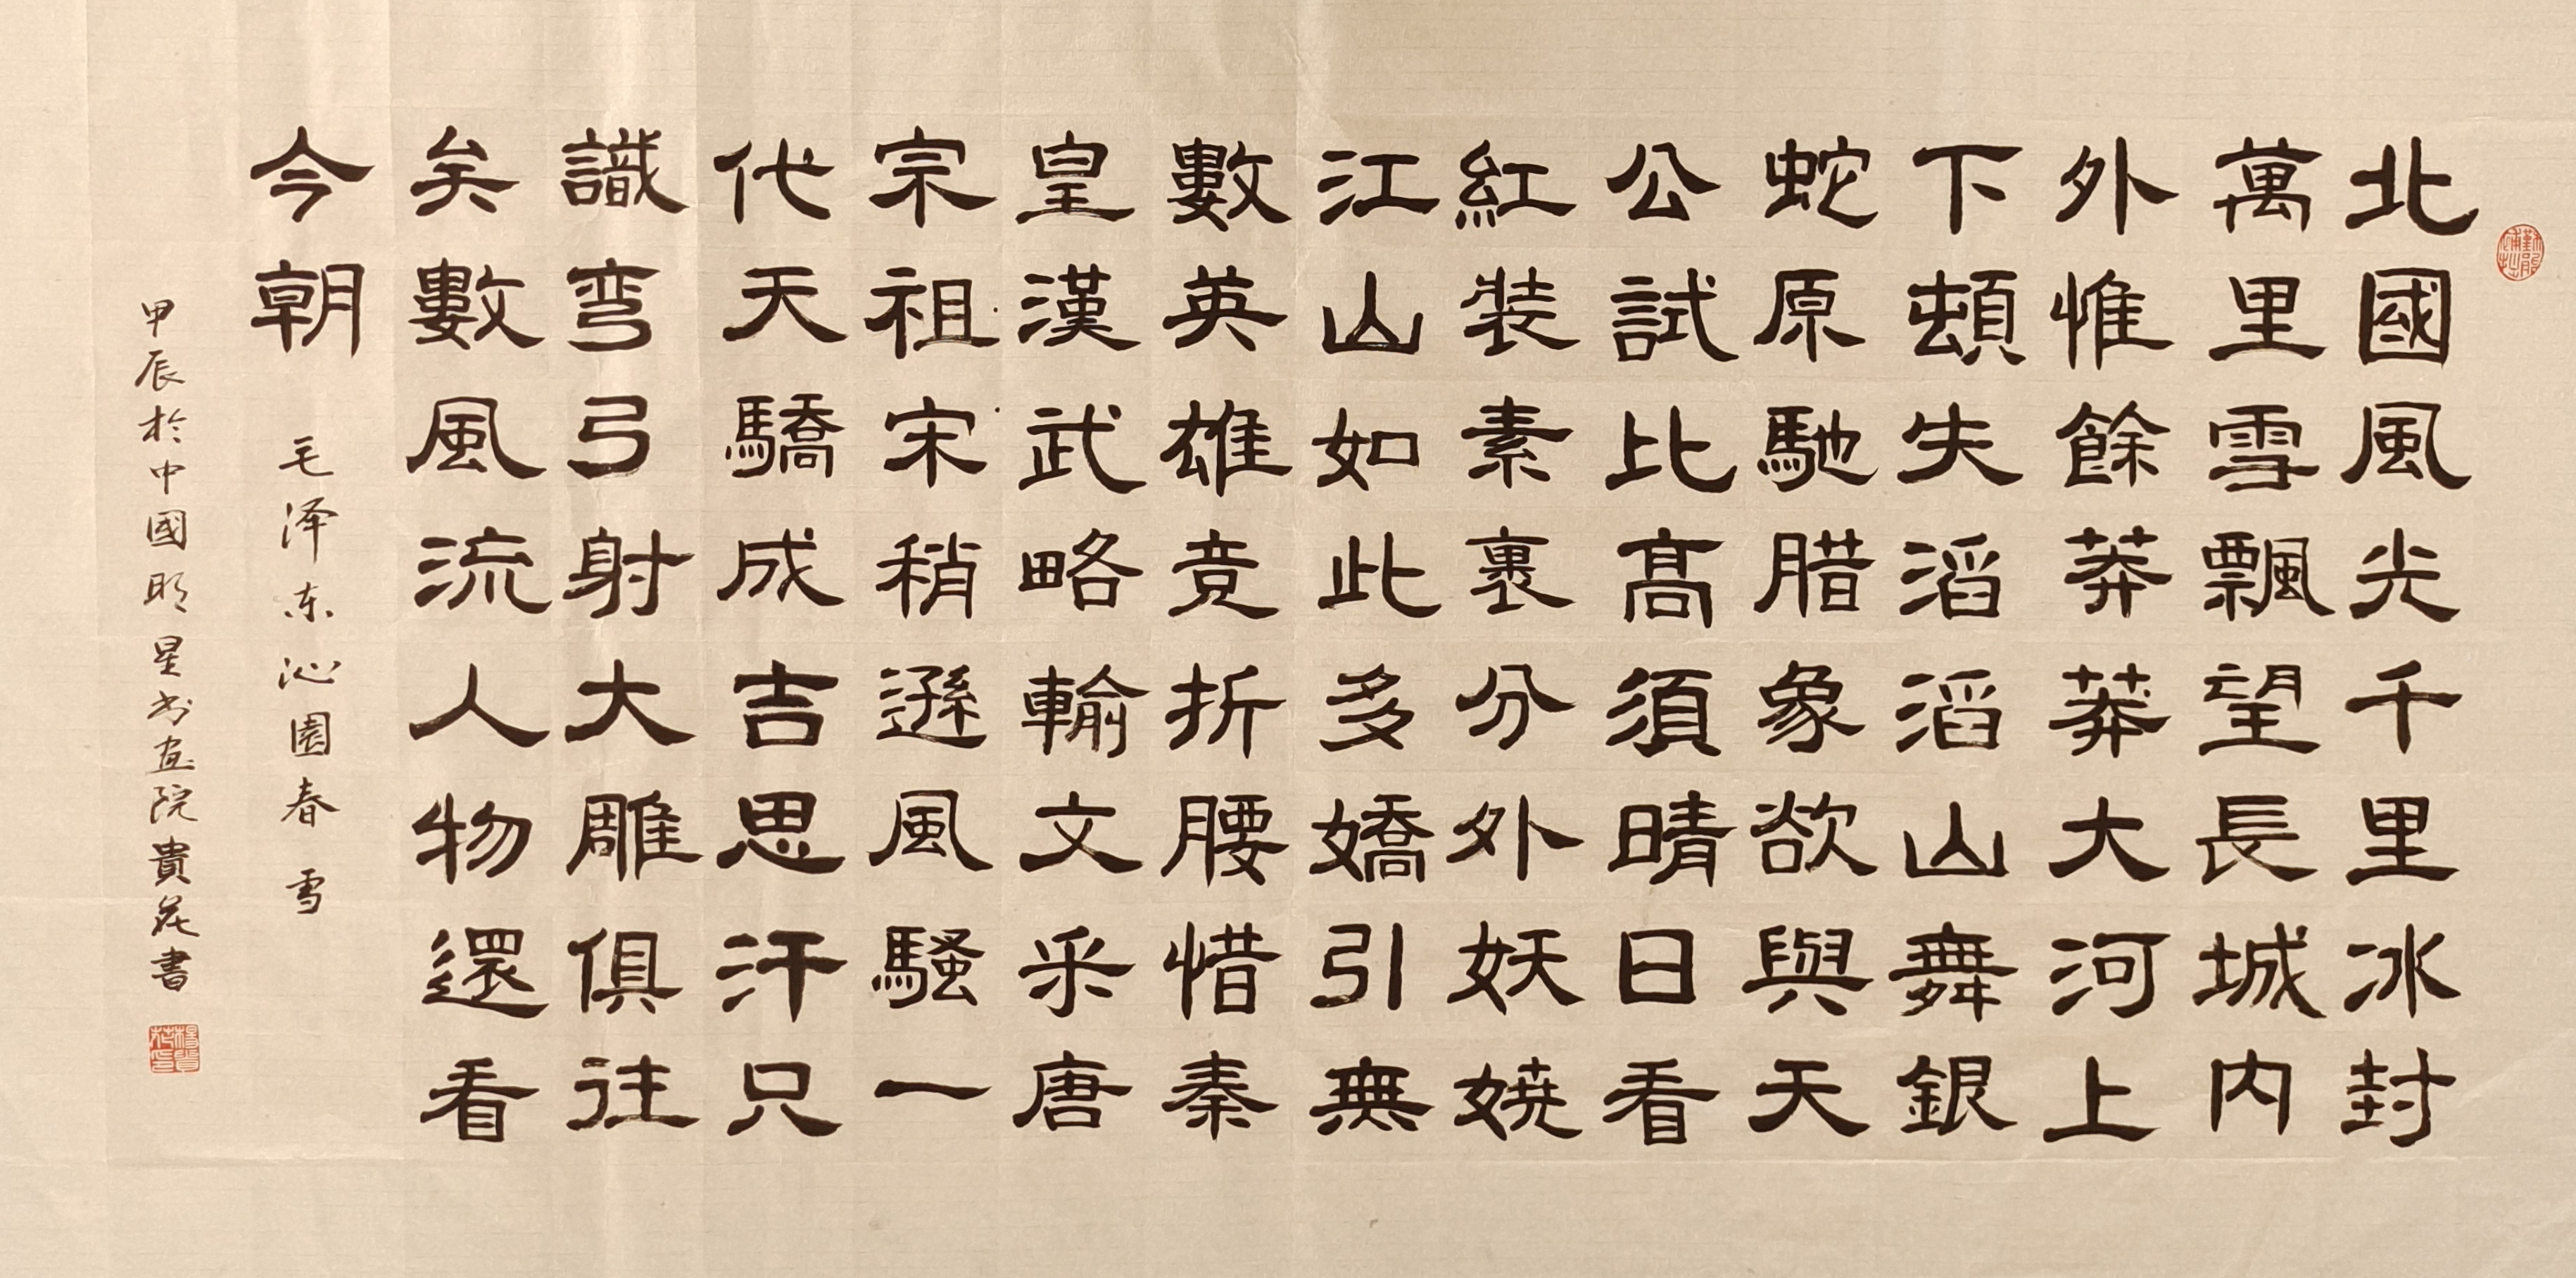 勤能補拙
北國風光千里冰封
萬里雪飄望長城内
外惟餘莽莽大河上
下頓失滔滔山舞銀
蛇原馳腊象欲與天
公試比髙須晴日看
紅裝素裹分外妖娆
江山如此多嬌引無
數英雄竞折腰惜秦
皇漢武略輸文采唐
宗祖宋稍遜風騷一
代天驕成吉思汗只
識弯弓射大雕俱往
矣數風流人物還看
今朝
毛泽东沁園春雪
甲辰於中國明星书画院貴花書